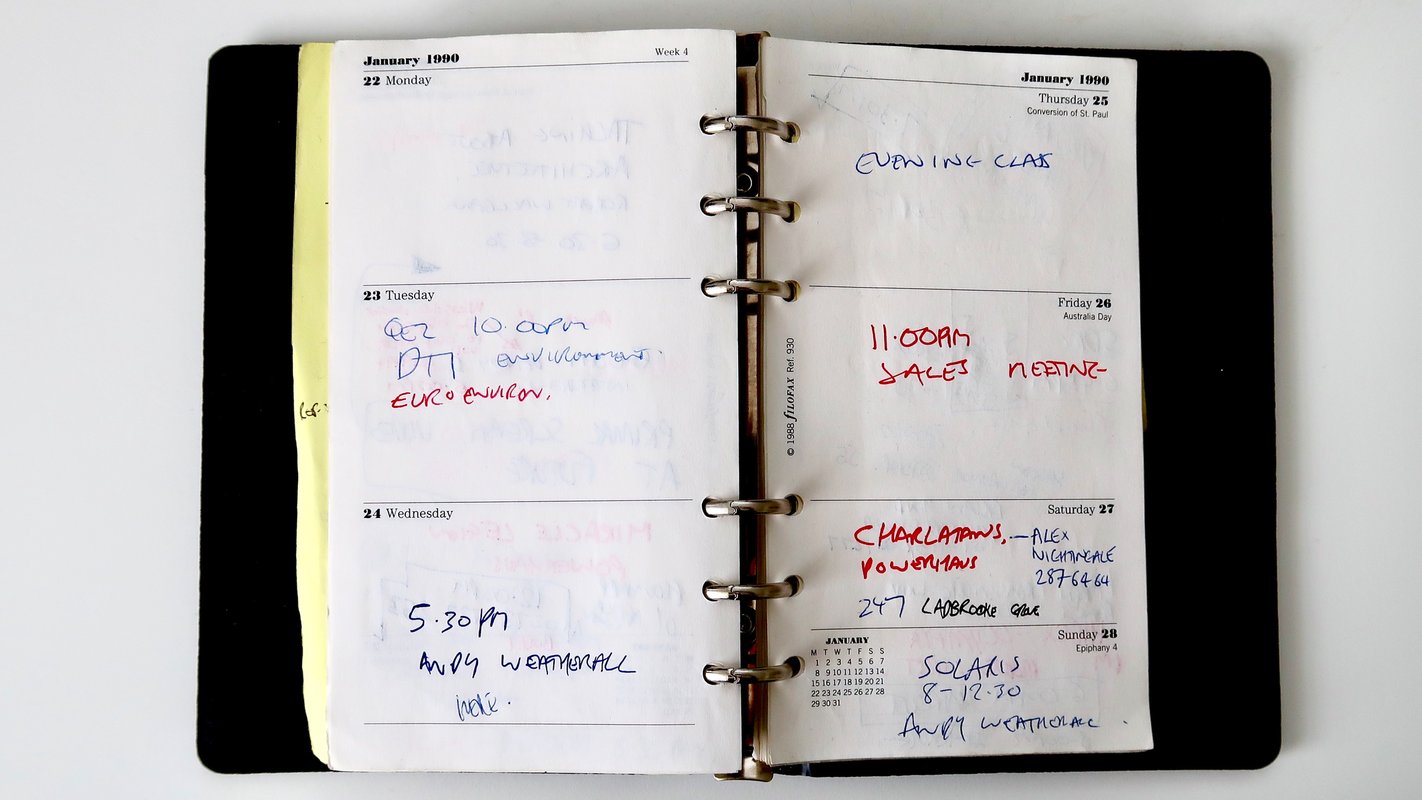 January 1990 Week 4
22 Monday
23 Tuesday
QEZ 10.00PM
DTI ENVIRONMENT.
EURO ENVIRON.
24 Wednesday
5.30PM
ANDY WEATHERALL
HERE.
January 1990
Thursday 25
Conversion of St. Paul
EVENING CLASS
Friday 26
Australia Day
11.00AM
SALES MEETING
© 1988 FILOFAX Ref. 930
Saturday 27
CHARLATANS, — ALEX
POWERHAUS NIGHTINGALE
2876464
247 LADBROKE GROVE
Sunday 28
Epiphany 4
JANUARY
M T W T F S S
1 2 3 4 5 6 7
8 9 10 11 12 13 14
15 16 17 18 19 20 21
22 23 24 25 26 27 28
29 30 31
SOLARIS
8-12.30
ANDY WEATHERALL